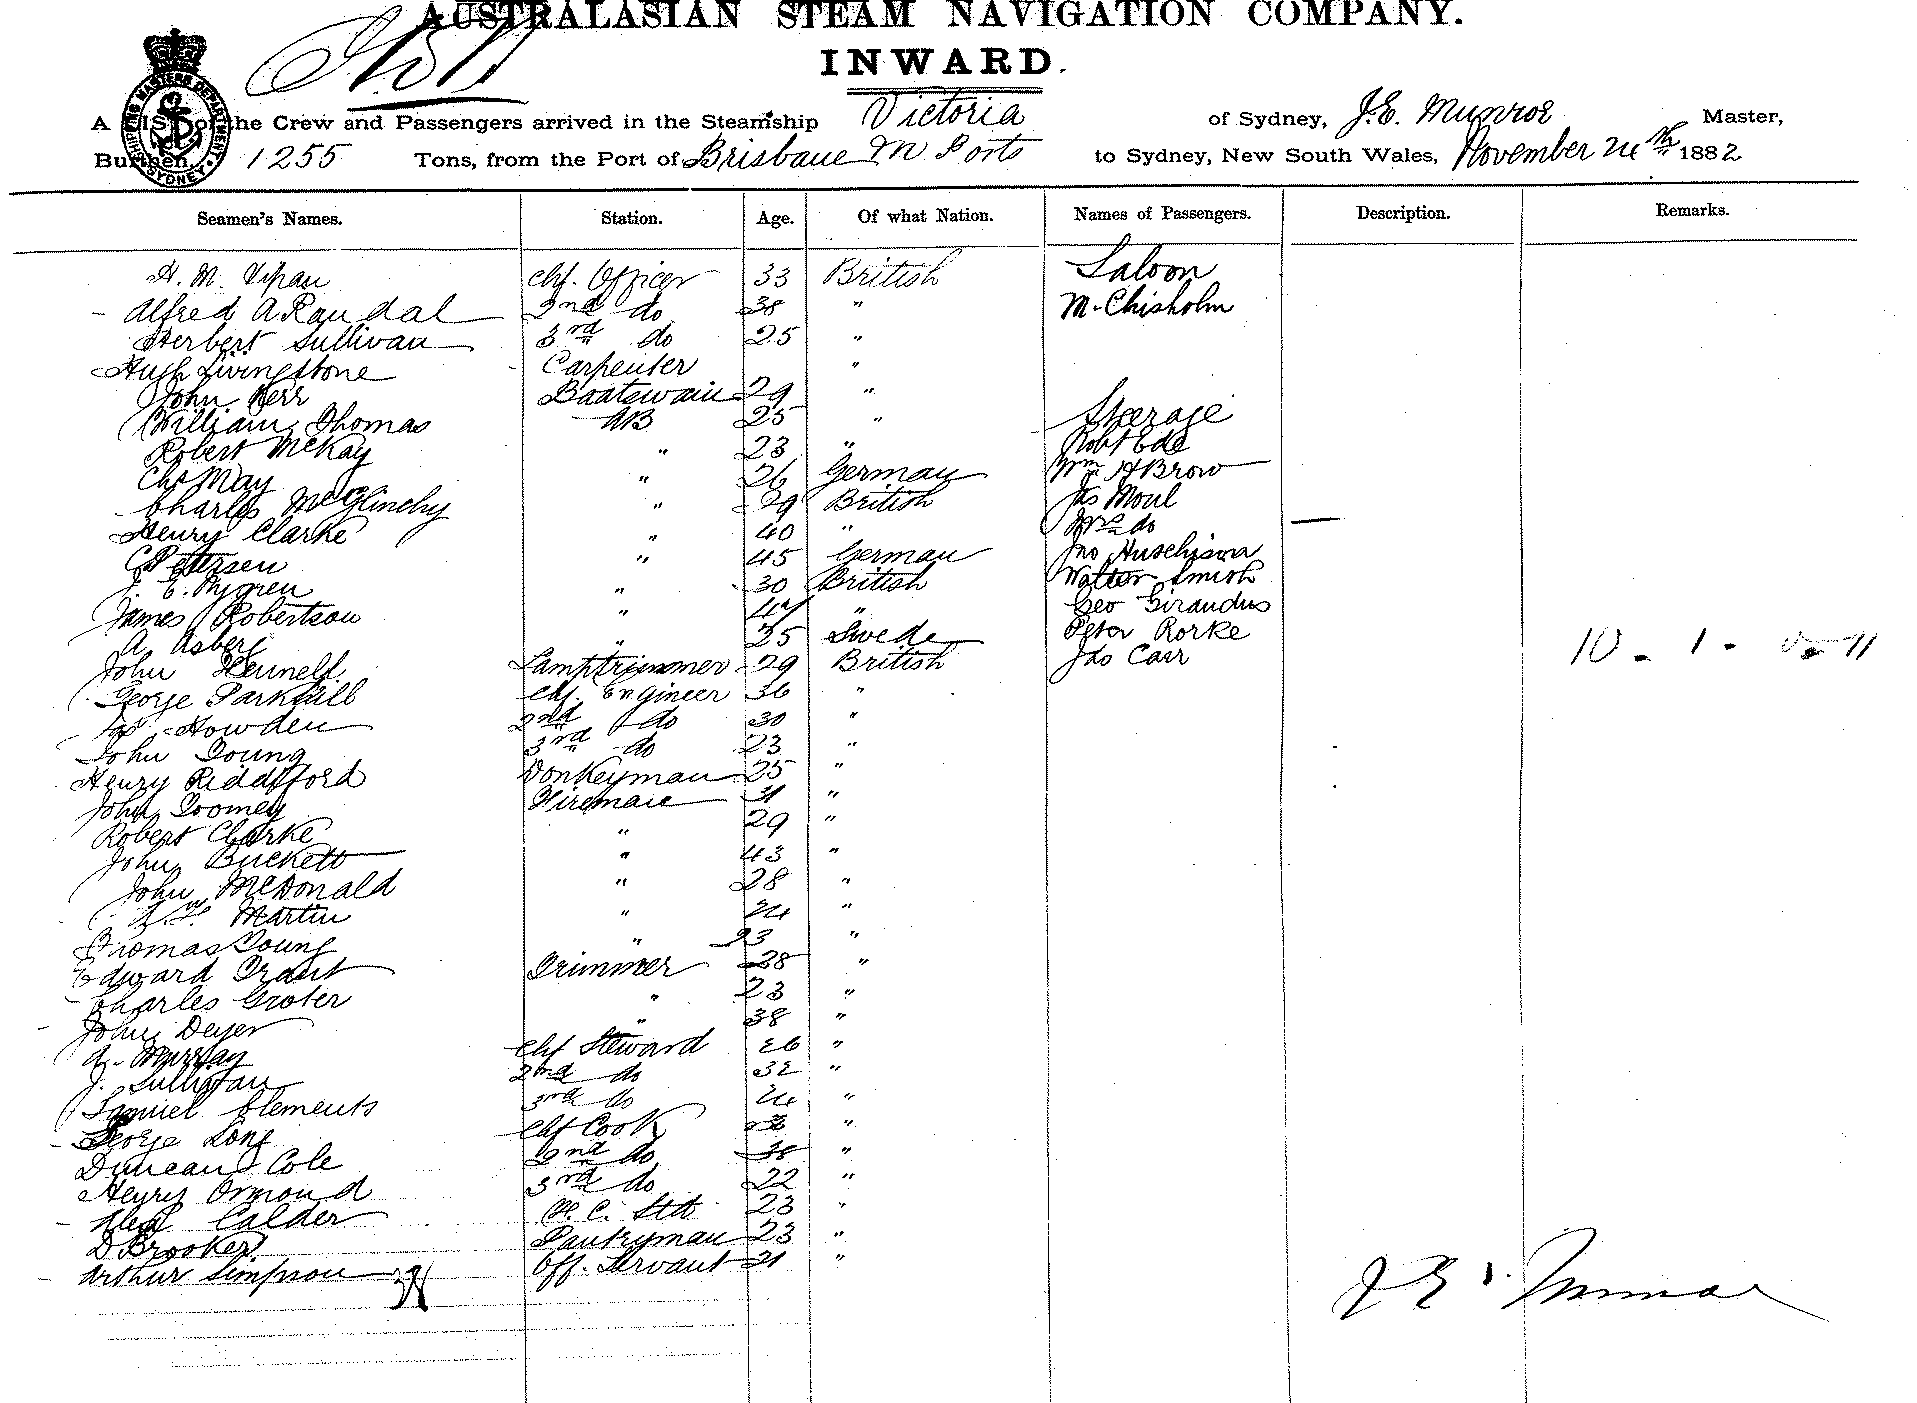 AUSTRALASIAN STEAM NAVIGATION COMPANY.
INWARD.
A LIST of the Crew and Passengers arrived in the Steamship Victoria of Sydney, J.E. Munroe Master,
Burthen 1255 Tons, from the Port of Brisbane M Ports to Sydney, New South Wales, November 24th 1882
SHIPPING MASTERS DEPARTMENT SYDNEY
Seamen's Names. Station. Age. Of what Nation. Names of Passengers. Description. Remarks.
H. M. Vipan Chf. Officer 33 British Saloon
Alfred A Randal 2nd do 38 " M. Chisholm
Herbert Sullivan 3rd do 25 "
Hugh Livingstone Carpenter "
John Kerr Boatswain 29 "
William Thomas AB 25 " Steerage
Robert McKay " 23 " Robt Ede
Chs May " 26 German Wm H Brow
Charles McGlinchy " 29 British Jas Moul
Henry Clarke " 40 " Mrs do
C Petersen " 45 German Jno Hutchison
J. E. Nygren " 30 British Walter Smith
James Robertson " " Geo Giraudus
A Asberg " 25 Swede Peter Rorke
John Lamptrimmer 29 British Jas Carr
George Parkhall Chf. Engineer 36 "
Howden 2nd do 30 "
John Young 3rd do 23 "
Henry Riddiford Donkeyman 25 "
John Toomey Fireman 31 "
Robert Clarke " 29 "
John Buckett " 43 "
John McDonald " 28 "
Martin " 24 "
Thomas Young " 23 "
Edward Grant Trimmer 28 "
Charles Groter " 23 "
John Dwyer " 38 "
A. Murray Chf Steward 26 "
J. Sullivan 2nd do 32 "
Samuel Clements 3rd do 24 "
George Long Chf Cook "
Duncan Cole 2nd do 38 "
Henry Ormond 3rd do 22 "
Alex Calder 23 "
D Brooker Pantryman 23 "
Arthur Simpson Off. Servant 21 "
38
10 - 1 - 0 - 11
J E Munroe